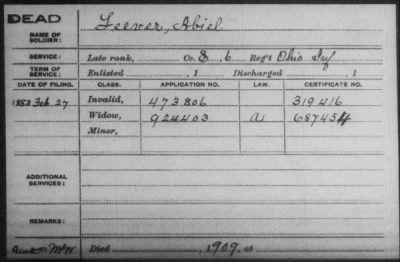 DEAD
NAME OF SOLDIER: Leever, Abiel
SERVICE: Late rank, Co. 6 Reg't Ohio Inf
TERM OF SERVICE: Enlisted , 1 Discharged , 1
DATE OF FILING. CLASS. APPLICATION NO. LAW. CERTIFICATE NO.
1883 Feb 27 Invalid, 473806 319416
Widow, 924403 a 687454
Minor,
ADDITIONAL SERVICES:
REMARKS:
Died , 1909, at